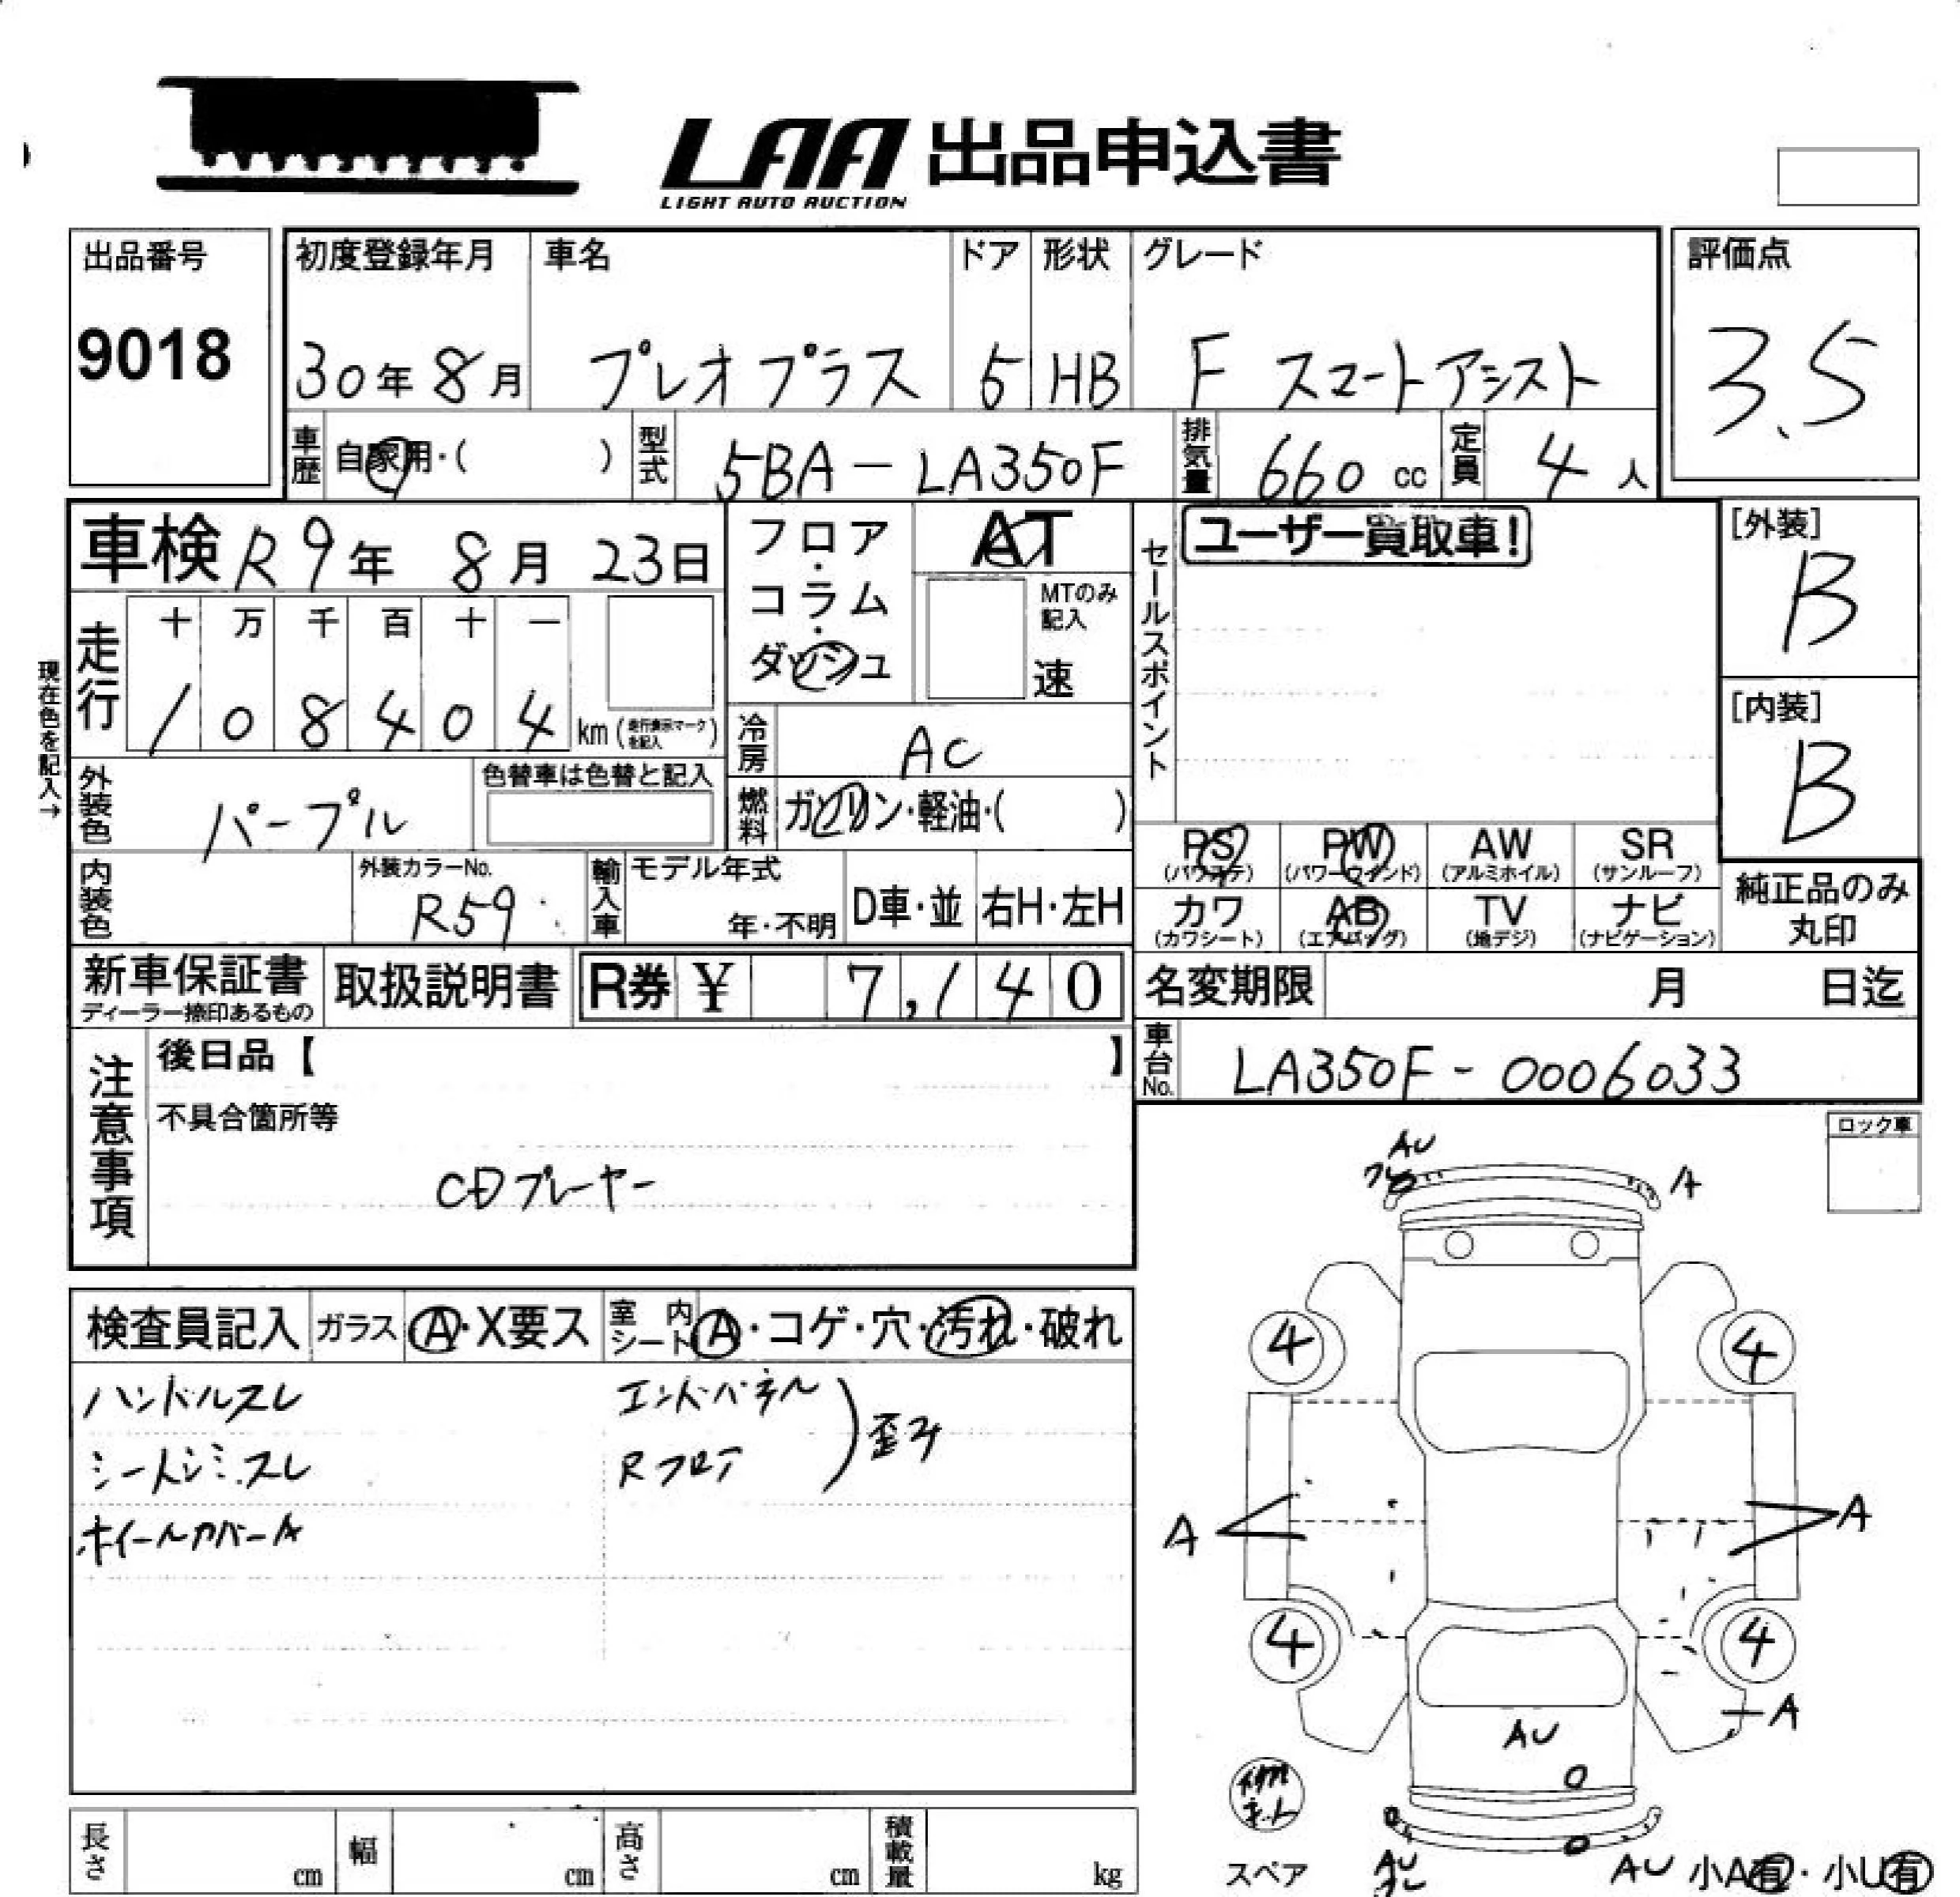 LAA 出品申込書
LIGHT AUTO AUCTION
出品番号
9018
初度登録年月
30年8月
車名
プレオプラス
ドア
5
形状
HB
グレード
F スマートアシスト
評価点
3.5
車歴
自家用・( )
型式
5BA-LA350F
排気量
660 cc
定員
4人
車検 R9年 8月 23日
フロア・コラム・ダッシュ
AT
MTのみ記入
速
セールスポイント
ユーザー買取車!
[外装]
B
[内装]
B
現在色を記入→
走行
十 万 千 百 十 一
1 0 8 4 0 4 km (走行表示マークを記入)
冷房
AC
外装色
パープル
色替車は色替と記入
燃料
ガソリン・軽油・( )
PS (パワステ)
PW (パワーウインド)
AW (アルミホイル)
SR (サンルーフ)
カワ (カワシート)
AB (エアバッグ)
TV (地デジ)
ナビ (ナビゲーション)
純正品のみ丸印
内装色
外装カラーNo.
R59
輸入車
モデル年式
年・不明
D車・並
右H・左H
新車保証書
ディーラー捺印あるもの
取扱説明書
R券 ¥ 7,140
名変期限 月 日迄
車台No.
LA350F-0006033
注意事項
後日品【 】
不具合箇所等
CDプレーヤー
ロック車
検査員記入
ガラス
A・X要ス
室内シート
A・コゲ・穴・汚れ・破れ
ハンドルスレ
シートシミ.スレ
ホイールカバーA
エンドパネル
Rフロア
歪み
AU
A
4
4
A
A
4
4
A
AU
スペア
AU
AU
小A有・小U有
長さ cm
幅 cm
高さ cm
積載量 kg